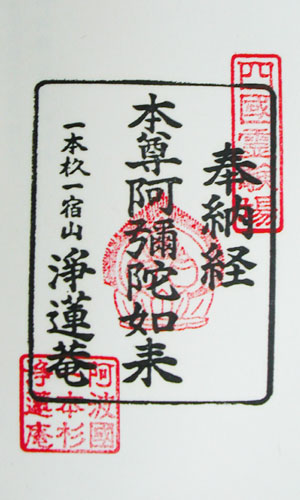 四國霊験場
奉納経
本尊阿彌陀如来
一本杦一宿山 淨蓮菴
阿波國
一本杉
淨蓮庵